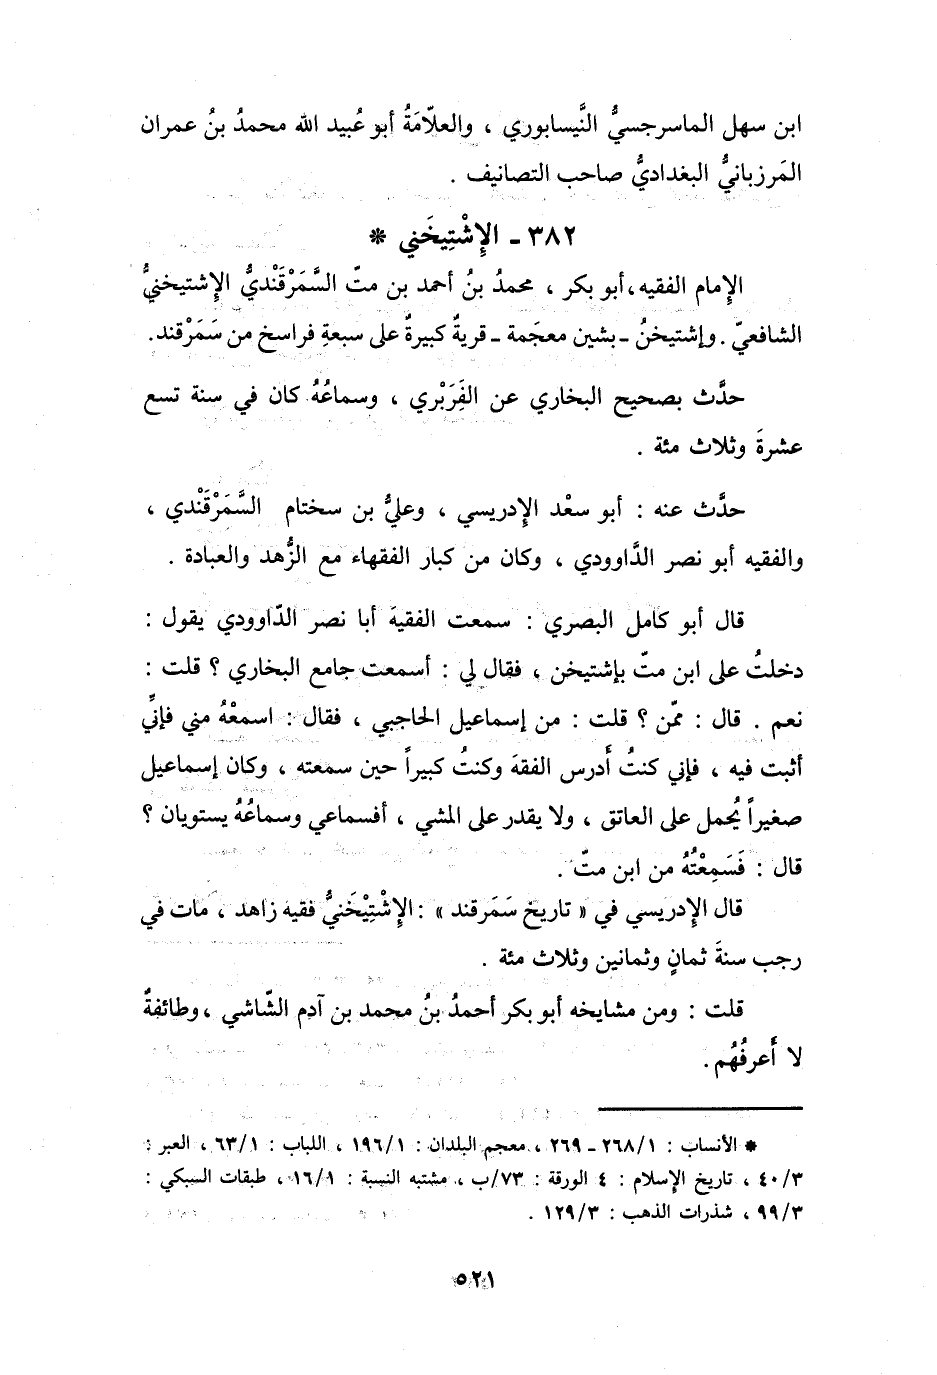 ابن سهل الماسرجسيُّ النَّيسابوري ، والعلاّمَةُ أبو عُبيد الله محمدُ بنُ عمران
المَرزبانيُّ البغداديُّ صاحب التصانيف .
٣٨٢ - الإِشْتِيخَني *
الإِمام الفقيه،أبو بكر ، محمدُ بنُ أحمد بن متّ السَّمَرْقَنْديُّ الإِشتيخنيُّ
الشافعيّ . وإشتيخنُ - بشين معجَمة - قريةٌ كبيرةٌ على سبعةِ فراسخ من سَمَرْقند.
حدَّث بصحيح البخاري عن الفَِرَبْري ، وسماعُهُ كان في سنة تسع
عشرةَ وثلاث مئة .
حدَّث عنه : أبو سعْد الإِدريسي ، وعليُّ بن سختام السَّمَرْقَنْدي ،
والفقيه أبو نصر الدَّاوودي ، وكان من كبار الفقهاء مع الزُّهد والعبادة .
قال أبو كامل البصري : سمعت الفقيهَ أبا نصر الدّاوودي يقول :
دخلتُ على ابن متّ بإشتيخن ، فقال لي : أسمعت جامع البخاري ؟ قلت :
نعم . قال : ممّن ؟ قلت : من إسماعيل الحاجبي ، فقال : اسمعْهُ مني فإنِّي
أثبت فيه ، فإني كنتُ أَدرس الفقهَ وكنتُ كبيراً حين سمعته ، وكان إسماعيل
صغيراً يُحمل على العاتق ، ولا يقدر على المشي ، أفسماعي وسماعُهُ يستويان ؟
قال : فَسَمِعْتُهُ من ابن متّ .
قال الإِدريسي في « تاريخ سَمَرقند » : الإِشْتِيْخَنيُّ فقيه زاهد ، مات في
رجب سنةَ ثمانٍ وثمانين وثلاث مئة .
قلت : ومن مشايخه أبو بكر أحمدُ بنُ محمد بن آدم الشّاشي ، وطائفةٌ
لا أَعرفُهُم .
* الأنساب : ٢٦٨/١ - ٢٦٩ ، معجم البلدان : ١٩٦/١ ، اللباب : ٦٣/١ ، العبر :
٤٠/٣ ، تاريخ الإسلام : ٤ الورقة : ٧٣/ب ، مشتبه النسبة : ١٦/١ ، طبقات السبكي :
٩٩/٣ ، شذرات الذهب : ١٢٩/٣ .
٥٢١